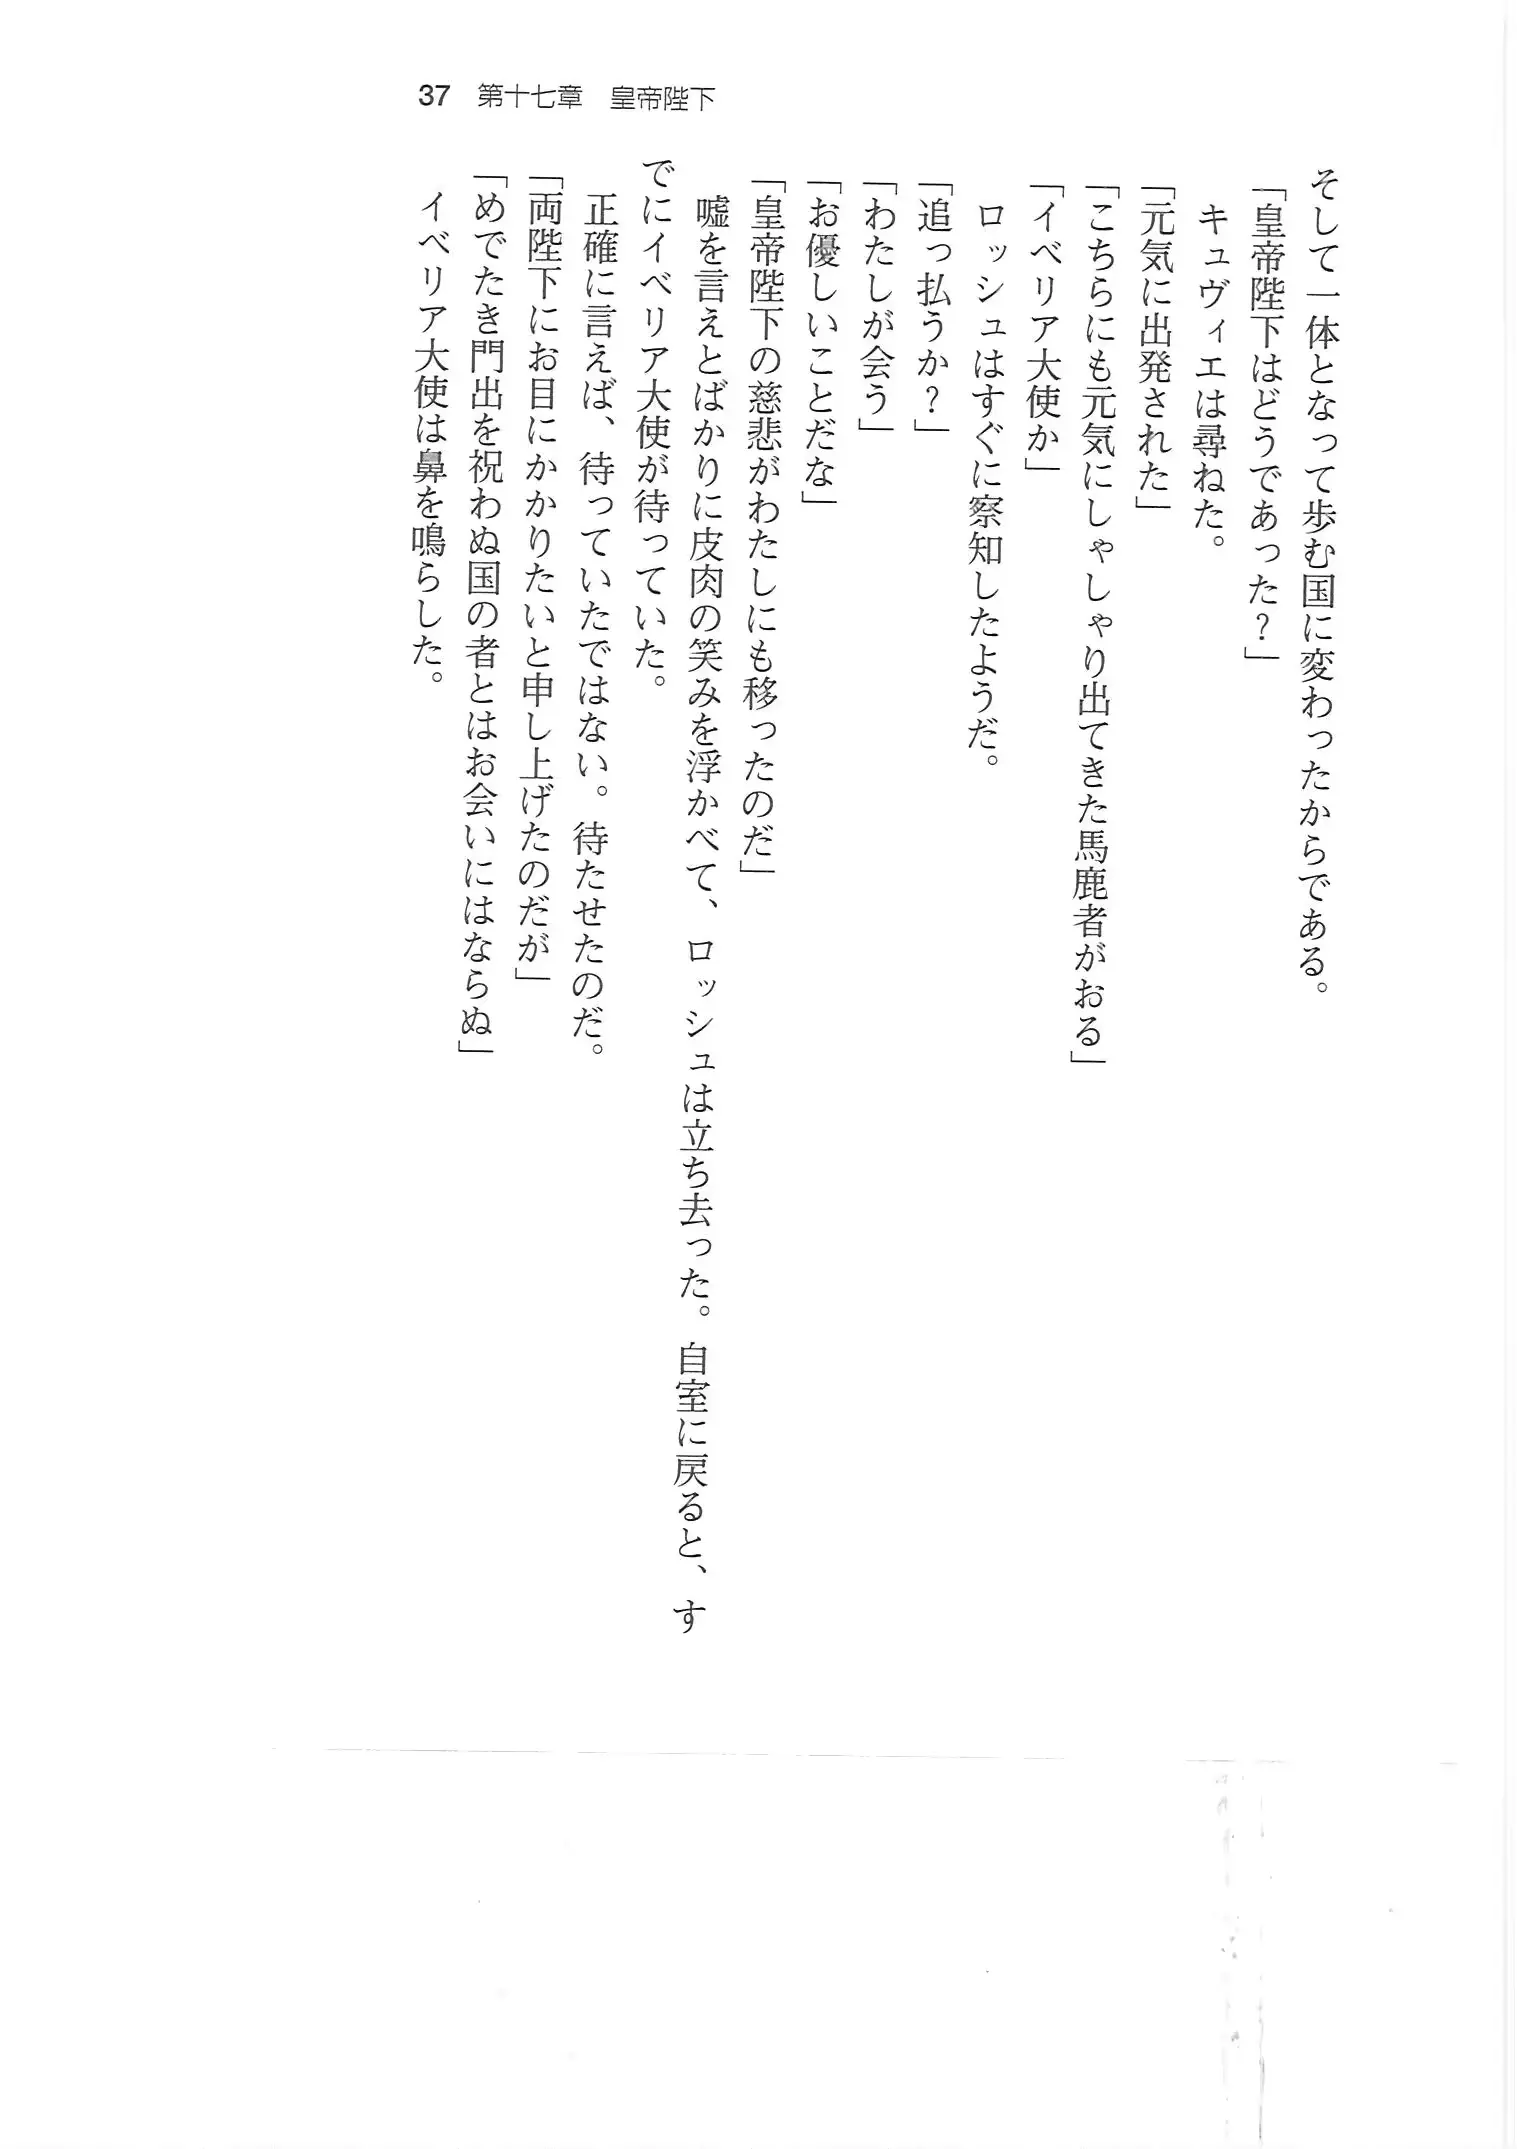 37 第十七章 皇帝陛下
そして一体となって歩む国に変わったからである。
「皇帝陛下はどうであった?」
キュヴィエは尋ねた。
「元気に出発された」
「こちらにも元気にしゃしゃり出てきた馬鹿者がおる」
「イベリア大使か」
ロッシュはすぐに察知したようだ。
「追っ払うか?」
「わたしが会う」
「お優しいことだな」
「皇帝陛下の慈悲がわたしにも移ったのだ」
嘘を言えとばかりに皮肉の笑みを浮かべて、ロッシュは立ち去った。自室に戻ると、す
でにイベリア大使が待っていた。
正確に言えば、待っていたではない。待たせたのだ。
「両陛下にお目にかかりたいと申し上げたのだが」
「めでたき門出を祝わぬ国の者とはお会いにはならぬ」
イベリア大使は鼻を鳴らした。